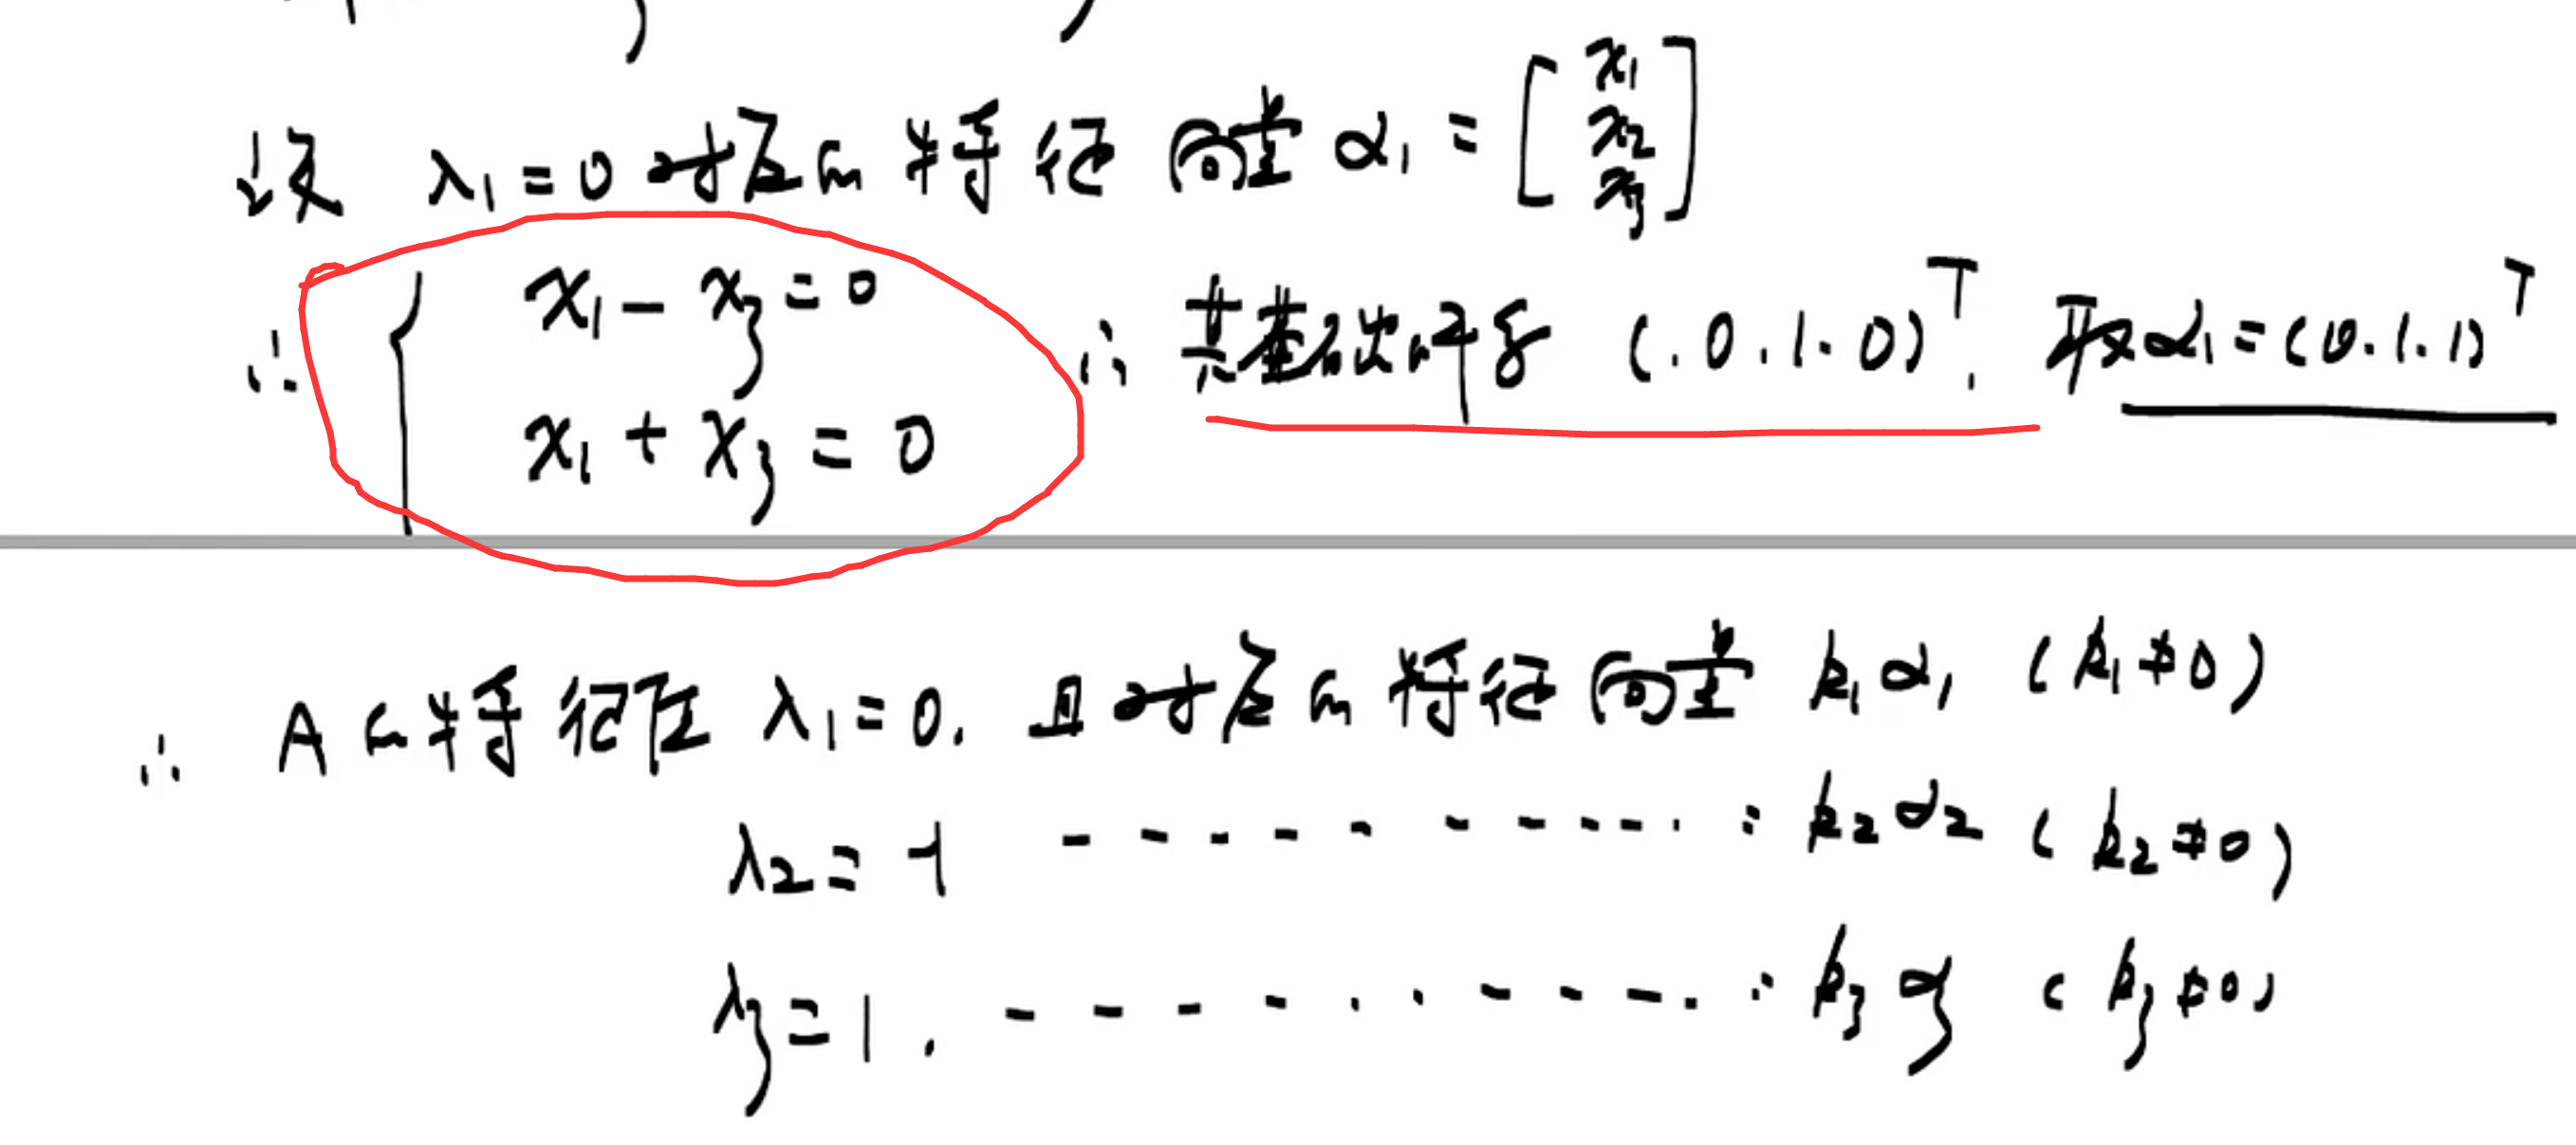 设 λ₁=0 对应的特征向量 α₁ = [x₁ x₂ x₃]
∴ { x₁ - x₃ = 0
x₁ + x₃ = 0
∴ 其基础解系 (.0.1.0)ᵀ. 取α₁=(0.1.1)ᵀ
∴ A的特征值 λ₁=0. 且对应的特征向量 k₁α₁ (k₁≠0)
λ₂=-1 ---------: k₂α₂ (k₂≠0)
λ₃=1. ----------: k₃α₃ (k₃≠0)